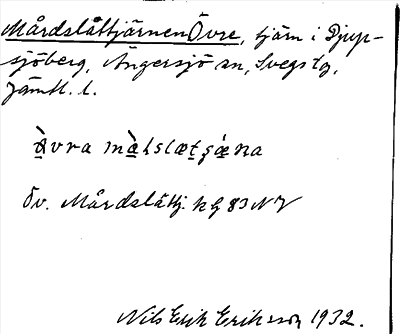 Mårdslåttjärnen Övre, tjärn i Djup-
sjöberg, Ängersjö sn, Svegs tg,
Jämtl. l.
Öv. Mårdslåttj. kg 83 NV
Nils Erik Eriksson 1932.